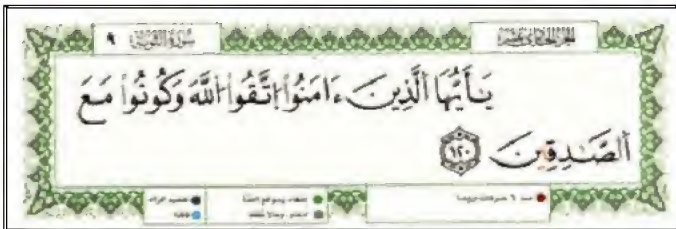 سُورَةُ التَّوْبَةِ ٩ الجزء الحادي عشر
يَٰٓأَيُّهَا ٱلَّذِينَ ءَامَنُوا۟ ٱتَّقُوا۟ ٱللَّهَ وَكُونُوا۟ مَعَ
ٱلصَّٰدِقِينَ ١٢٠